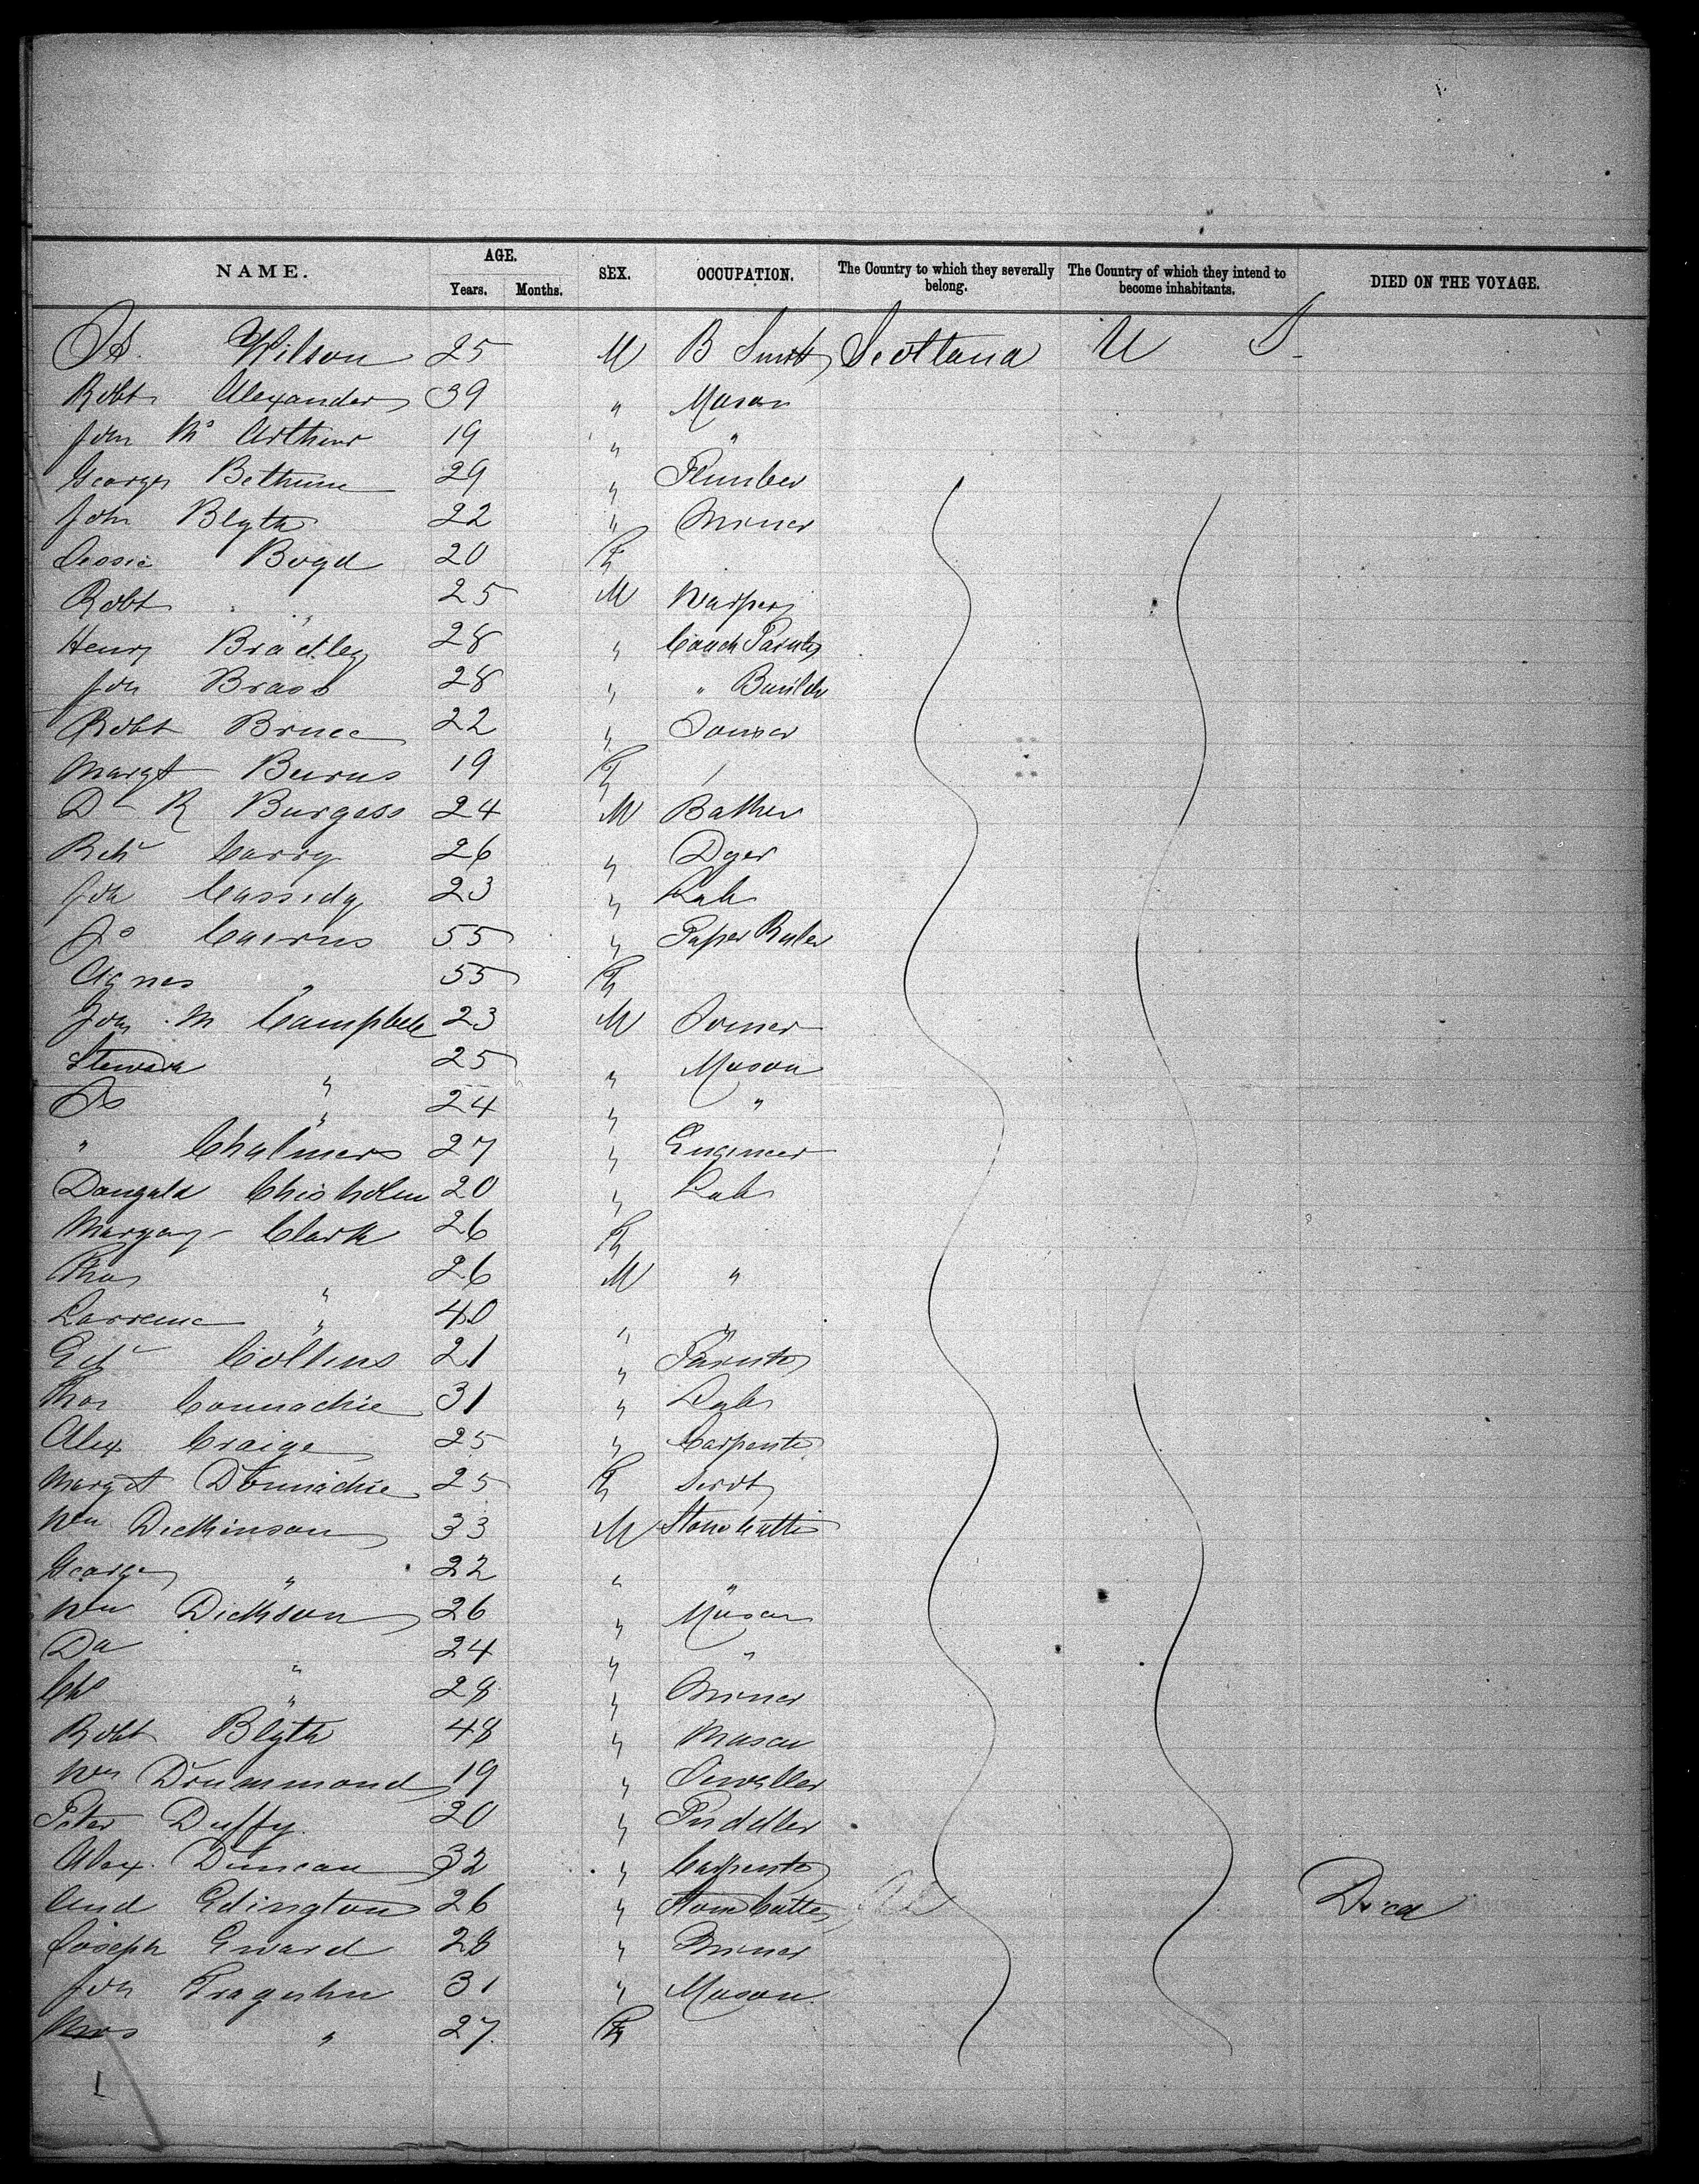 NAME. AGE. SEX. OCCUPATION. The Country to which they severally belong. The Country of which they intend to become inhabitants. DIED ON THE VOYAGE.
Years. Months.
Wilson 25 M B Smith Scotland U S
Robt Alexander 39 " Mason
John Mc Arthur 19 " "
George Bethune 29 " Plumber
John Blyth 22 " Miner
Jessie Boyd 20 F
Robt " 25 M Warper
Henry Bradley 28 " Coach Painter
Jon Brass 28 " " Builder
Robt Bruce 22 "
Margt Burns 19 F
D R Burgess 24 M
Carry 26 " Dyer
Jon Cassidy 23 " Lab
Jo Cairns 55 " Paper Ruler
Agnes " 55 F
Jon M Campbell 23 M Joiner
Steward " 25 " Mason
" 24 " "
" Chalmers 27 " Engineer
Dougald Chisholm 20 " Lab
Clark 26 F
Thos " 26 M "
Lawrence " 40 " "
Collins 21 " Painter
Thos Connachie 31 " Lab
Alex Craige 25 " Carpenter
Margt Donnachie 25 F Servt
Wm Dickinson 33 M Stone Cutter
George " 22 " "
Wm Dickson 26 " Mason
Da " 24 " "
Chs " 28 " Miner
Robt Blyth 48 " Mason
Wm Drummond 19 " Jeweller
Peter Duffy 20 " Puddler
Alex. Duncan 32 " Carpenter
And Edington 26 " Stone Cutter Died
Joseph Eward 28 " Miner
Jon 31 " Mason
Mrs " 27 F
1